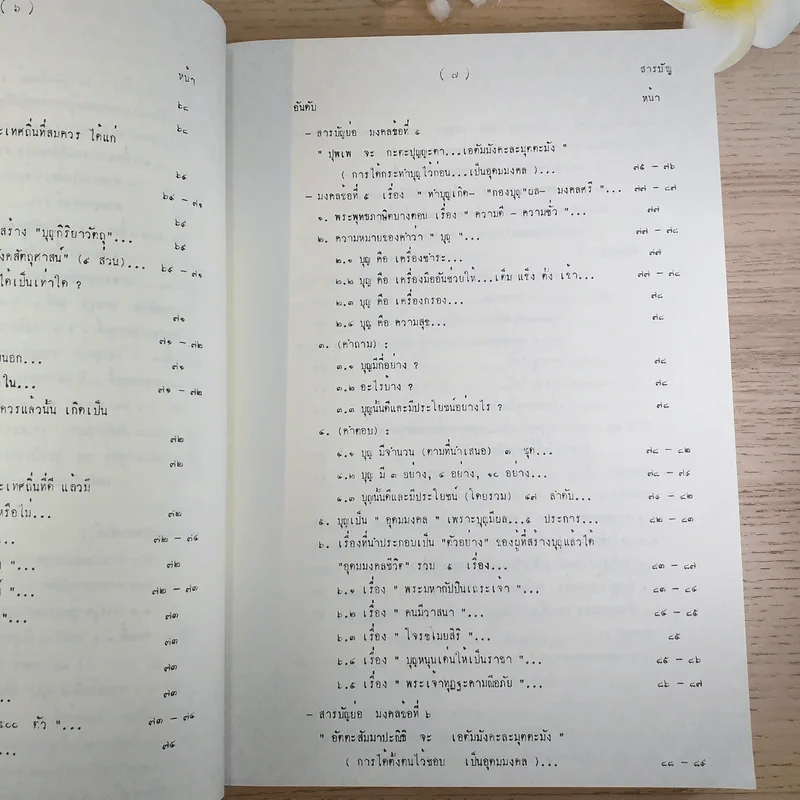 ( ๖ )
หน้า
๖๘
ะเทศถิ่นที่สมควร ได้แก่ ๖๘
สร้าง "บุญกิริยาวัตถุ"...
งคสัตถุศาสน์" (๙ ส่วน)... ๖๙ – ๗๑
ได้เป็นเท่าใด ?
๗๑
๗๑ – ๗๒
นอก... ๗๑
ใน... ๗๑ – ๗๒
ควรแล้วนั้น เกิดเป็น
๗๒
๗๒
ะเทศถิ่นที่ดี แล้วมี
หรือไม่... ๗๒
... ๗๒ – ๗๔
"... ๗๒
"... ๗๒ – ๗๓
"... ๗๓
๗๓
๗๓
... ๗๓
๕๐๐ ตัว "... ๗๓ – ๗๔
... ๗๔
( ๗ ) สารบัญ
อันดับ หน้า
– สารบัญย่อ มงคลข้อที่ ๕
" ปุพเพ จะ กะตะปุญญะตา...เอตัมมังคะละมุตตะมัง "
( การได้กระทำบุญไว้ก่อน...เป็นอุดมมงคล )... ๗๕ – ๗๖
– มงคลข้อที่ ๕ เรื่อง " ทำบุญเกิด– "กองบุญ"ผล– มงคลศรี "... ๗๗ – ๘๗
๑. พระพุทธภาษิตบางตอบ เรื่อง " ความดี – ความชั่ว "... ๗๗
๒. ความหมายของคำว่า " บุญ "... ๗๗ – ๗๘
๒.๑ บุญ คือ เครื่องชำระ... ๗๗
๒.๒ บุญ คือ เครื่องมืออันช่วยให้...เต็ม แข็ง ตั่ง เช้า... ๗๗ – ๗๘
๒.๓ บุญ คือ เครื่องกรอง... ๗๘
๒.๔ บุญ คือ ความสุข... ๗๘
๓. (คำถาม) :
๓.๑ บุญมีกี่อย่าง ? ๗๘
๓.๒ อะไรบ้าง ? ๗๘
๓.๓ บุญนั้นดีและมีประโยชน์อย่างไร ? ๗๘
๔. (คำตอบ) :
๔.๑ บุญ มีจำนวน (ตามที่นำเสนอ) ๓ ชุด... ๗๘ – ๘๒
๔.๒ บุญ มี ๓ อย่าง, ๔ อย่าง, ๑๐ อย่าง... ๗๘ – ๗๙
๔.๓ บุญนั้นดีและมีประโยชน์ (โดยรวม) ๔๗ ลำดับ... ๗๙ – ๘๒
๕. บุญเป็น " อุดมมงคล " เพราะบุญมีผล...๕ ประการ... ๘๒ – ๘๓
๖. เรื่องที่นำประกอบเป็น "ตัวอย่าง" ของผู้ที่สร้างบุญแล้วได้
"อุดมมงคลชีวิต" รวม ๕ เรื่อง... ๘๓ – ๘๗
๖.๑ เรื่อง " พระมหากัปปินเถระเจ้า "... ๘๓ – ๘๔
๖.๒ เรื่อง " คนมีวาสนา "... ๘๔ – ๘๕
๖.๓ เรื่อง " โจรขโมยสิริ "... ๘๕
๖.๔ เรื่อง " บุญหนุนเด่นให้เป็นราชา "... ๘๕ – ๘๖
๖.๕ เรื่อง " พระเจ้าทุฏฐะคามณีอภัย "... ๘๖ – ๘๗
– สารบัญย่อ มงคลข้อที่ ๖
" อัตตะสัมมาปะณิธิ จะ เอตัมมังคะละมุตตะมัง "
( การได้ตั้งตนไว้ชอบ เป็นอุดมมงคล )... ๘๘ – ๘๙